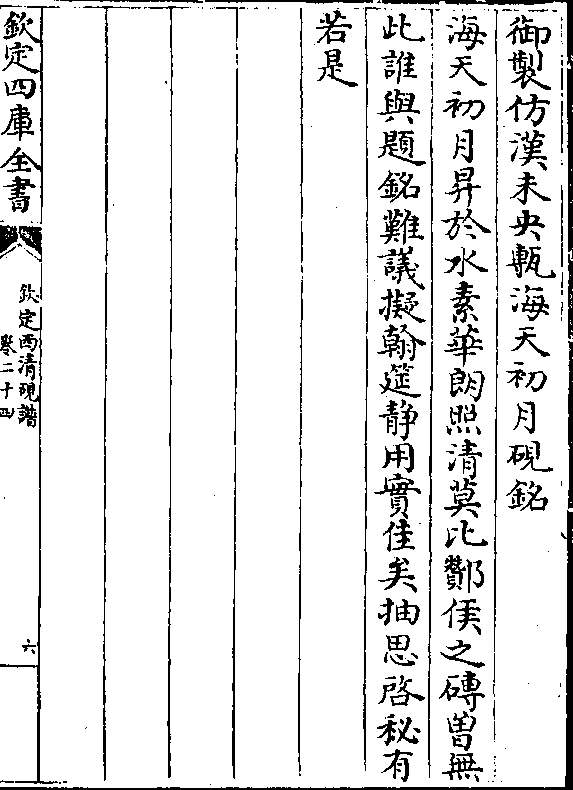 御製仿漢未央甎海天初月硯銘
海天初月昇於水素華朗照清莫比酇侯之磚曽無
此誰與題銘難議擬翰筵静用實佳矣抽思啓秘有
若是
欽定四庫全書
欽定西清硯譜
卷二十四
六